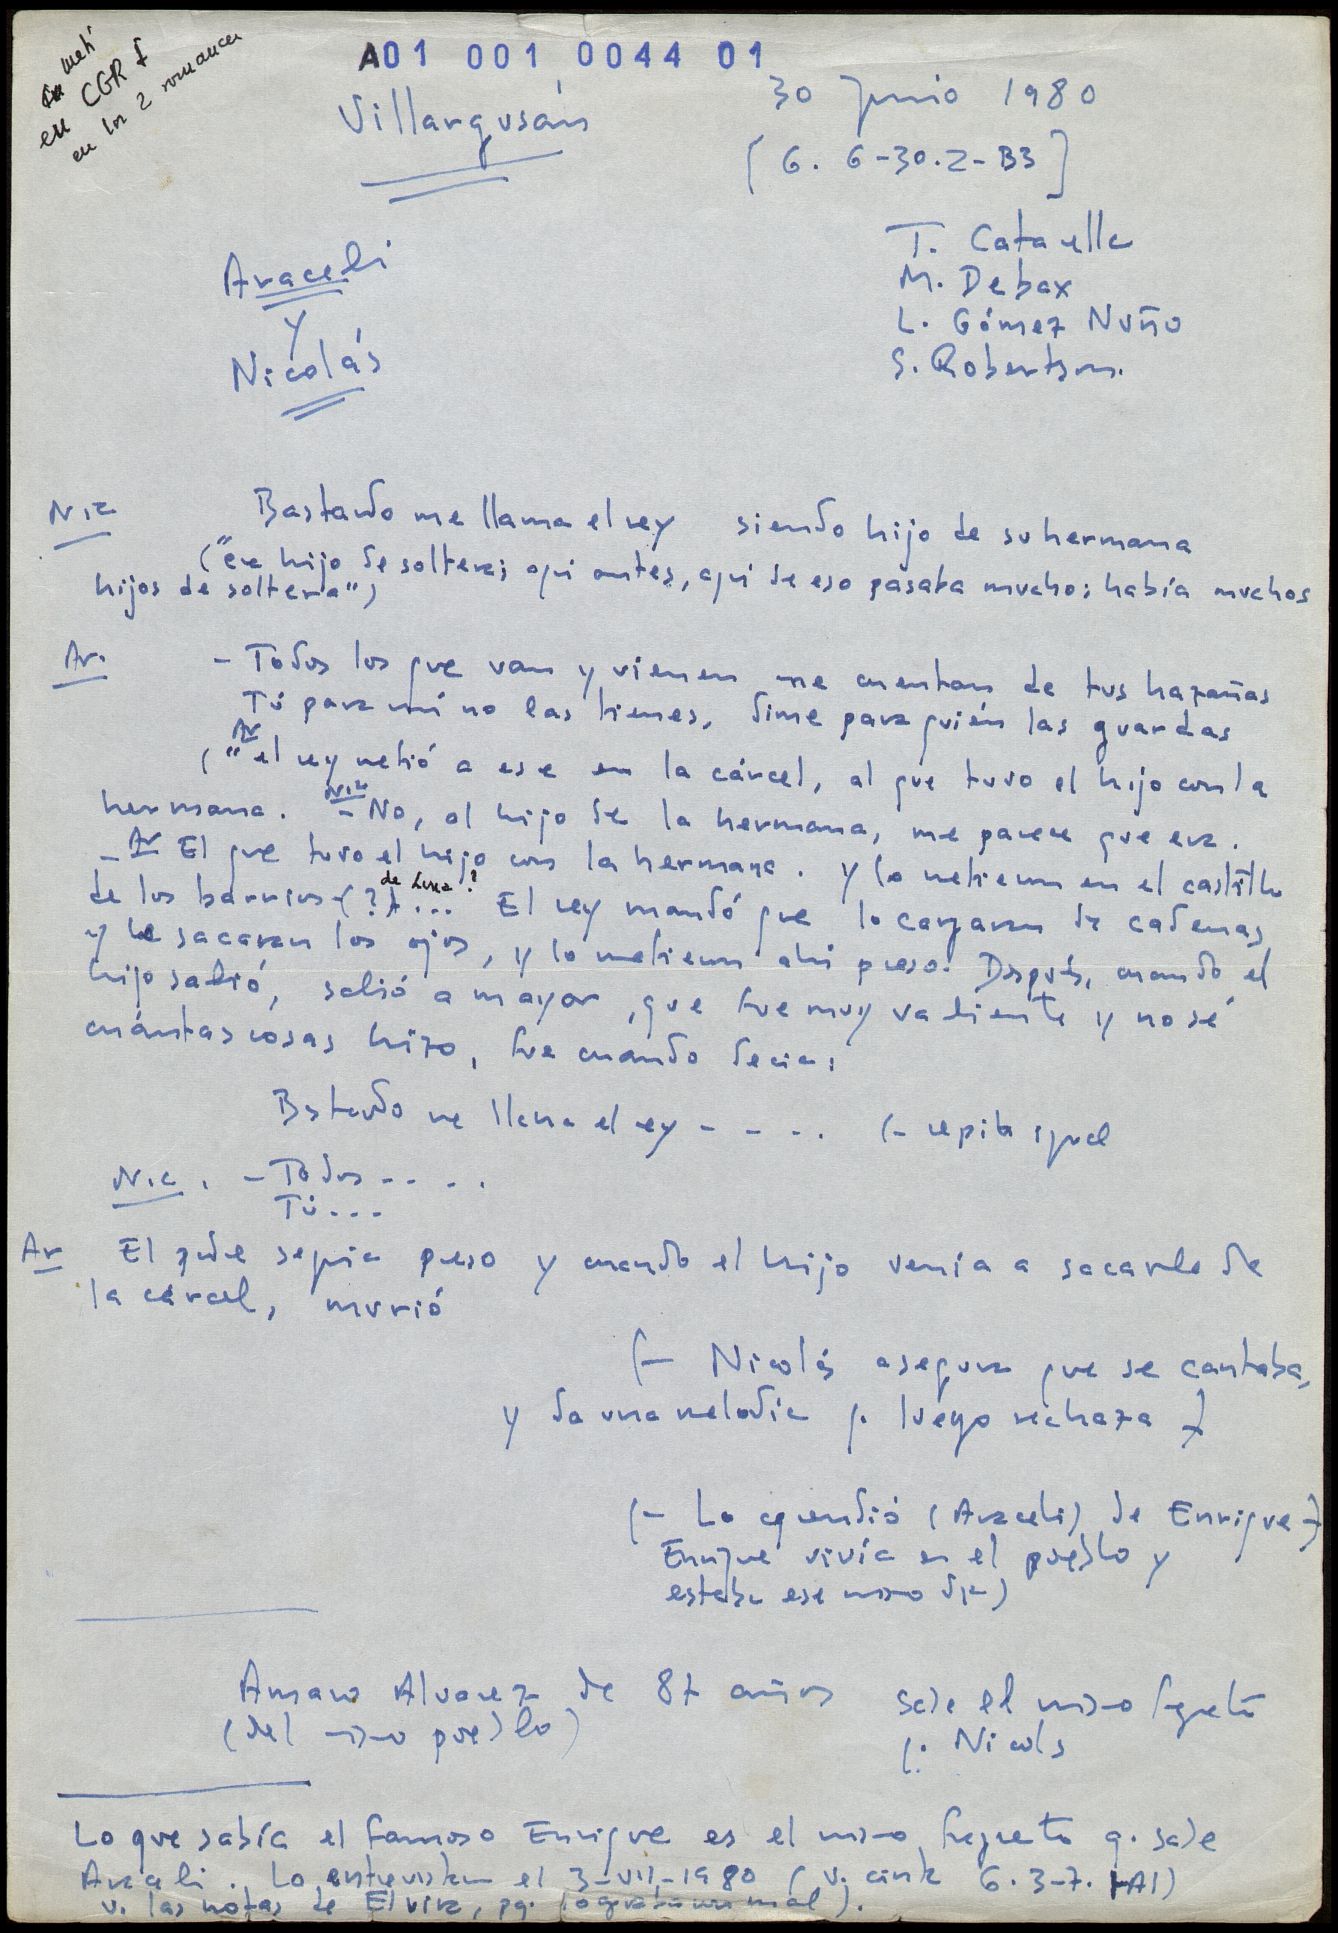 meti
en CGR f
en los 2 romances
A01 001 0044 01
Villargusán
30 Junio 1980
[6. 6-30.2-B3]
T. Catarella
M. Debax
L. Gómez Nuño
S. Robertson.
Araceli
y
Nicolás
Nic Bastardo me llama el rey siendo hijo de su hermana
("era hijo de soltera; aquí antes, aquí de eso pasaba mucho; había muchos
hijos de soltera")
Ar. - Todos los que van y vienen me cuentan de tus hazañas
Tú para mí no las tienes, dime para quién las guardas
Ar
("el rey metió a ese en la cárcel, al que tuvo el hijo con la
hermana. Nic - No, al hijo de la hermana, me parece que era.
- Ar El que tuvo el hijo con la hermana. Y lo metieron en el castillo
de Luna?
de los barrios (?) ... El rey mandó que lo cargaran de cadenas
y le sacaran los ojos, y lo metieron ahí preso. Después, cuando el
hijo salió, salió a mayor, que fue muy valiente y no sé
cuántas cosas hizo, fue cuando decía:
Bastardo me llama el rey - - - . (- repite igual
Nic. - Todos - - . .
Tú ...
Ar El padre seguía preso y cuando el hijo venía a sacarle de
la cárcel, murió
(- Nicolás asegura que se cantaba,
y da una melodía q. luego rechaza)
(- Lo aprendió (Araceli) de Enrique -)
Enrique vivía en el pueblo y
estaba ese mismo día)
Amaro Alvarez de 87 años sabe el mismo fragmento
(del mismo pueblo) q. Nicolás
Lo que sabía el famoso Enrique es el mismo fragmento q. sabe
Araceli. Lo entrevistan el 3-VII-1980 (v. cinta 6.3-7. A1)
v. las notas de Elvira, pq. lo grabaron mal).